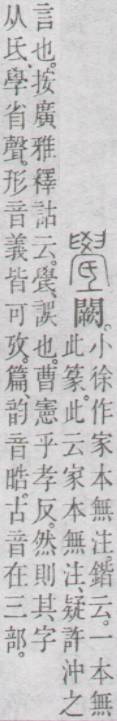 闕。小徐作家本無注。鍇云。一本無
此篆。此云家本無注、疑許沖之
言也。按廣雅釋詁云。誤也。曹憲乎孝反。然則其字
从氐、學省聲。形音義皆可攷。篇韵音晧。古音在三部。